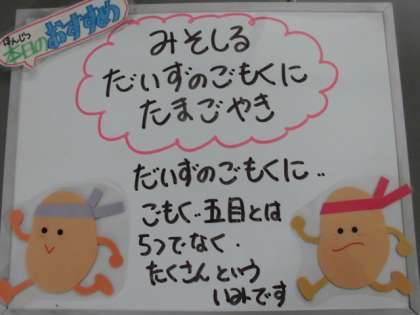 ほんじつ
本日のおすすめ
みそしる
だいずのごもくに
たまごやき
だいずのごもくに‥
ごもく‥五目とは
5つでなく・
たくさんという
いみです